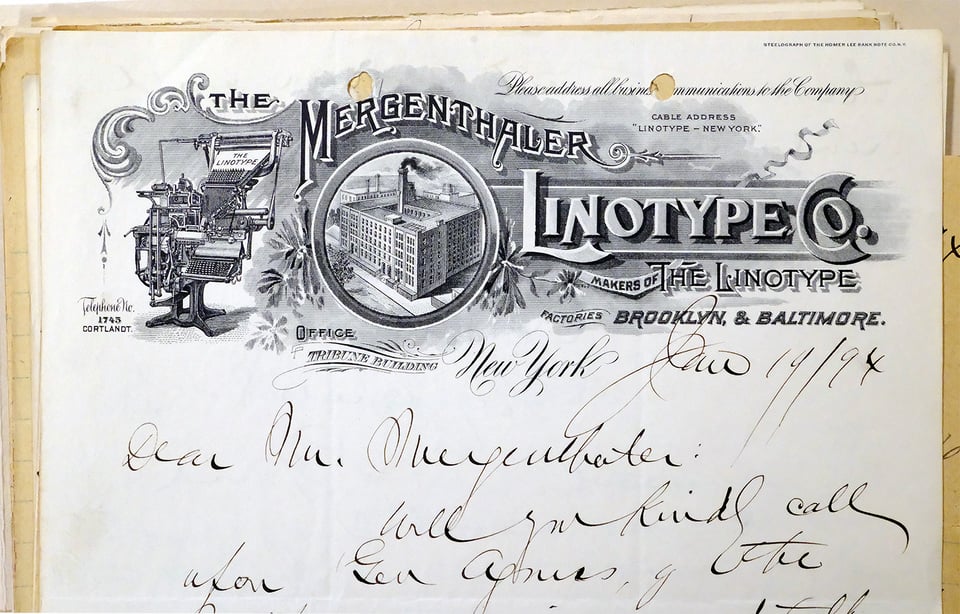 STEELOGRAPH OF THE HOMER LEE BANK NOTE CO. N.Y.
Please address all busine mmunications to the Company
CABLE ADDRESS
"LINOTYPE – NEW YORK."
THE MERGENTHALER
LINOTYPE CO.
THE
LINOTYPE
MAKERS OF THE LINOTYPE
FACTORIES BROOKLYN, & BALTIMORE.
Telephone No.
1745
CORTLANDT.
OFFICE
TRIBUNE BUILDING
New York Jan 19/94
Dear Mr. Mergenthaler:
Will you kindly call
upon Gen Agnus, of the